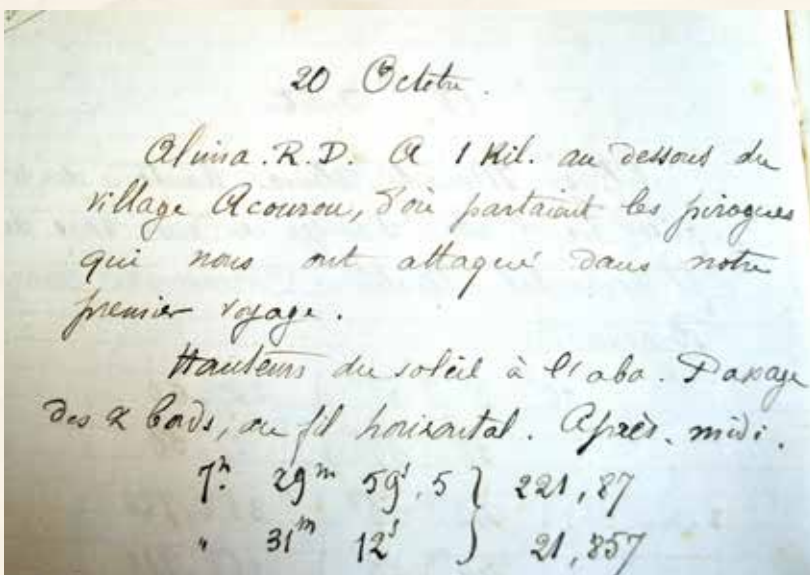 20 Octobre.
Alima. R. D. A 1 Kil. au dessous du
village Acourou, d'où partaient les pirogues
qui nous ont attaqué dans notre
premier voyage.
Hauteurs du soleil à l'aba. Passage
des 2 bords, au fil horizontal. Après-midi.
7h 29m 59s,5 } 221,87
" 31m 12s } 21,857